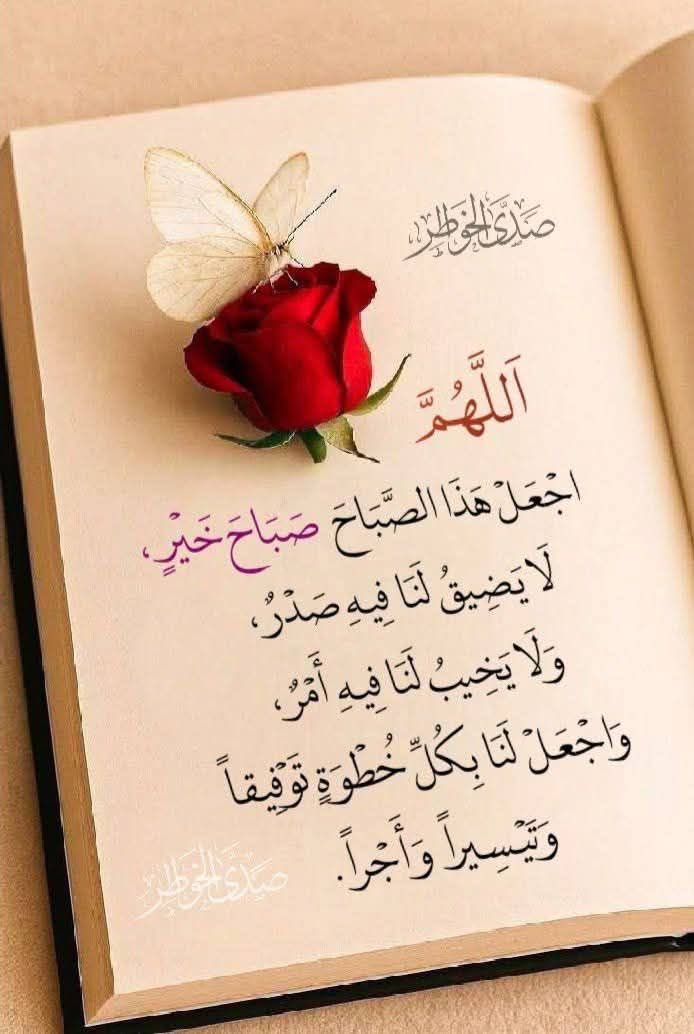 صَدَى الخَوَاطِر
اَللَّهُمَّ
اجْعَلْ هَذَا الصَّبَاحَ صَبَاحَ خَيْرٍ،
لَا يَضِيقُ لَنَا فِيهِ صَدْرٌ،
وَلَا يَخِيبُ لَنَا فِيهِ أَمْرٌ،
وَاجْعَلْ لَنَا بِكُلِّ خُطْوَةٍ تَوْفِيقاً
وَتَيْسِيراً وَأَجْراً.
صَدَى الخَوَاطِر